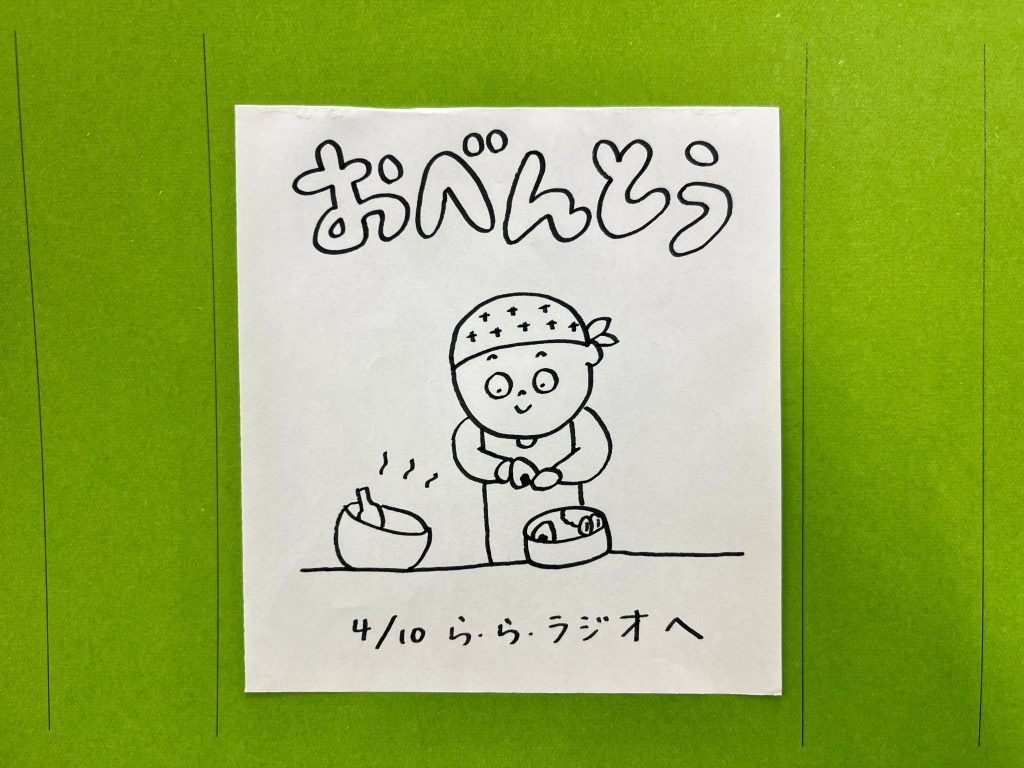 おべんとう
4/10 ら.ら.ラジオへ